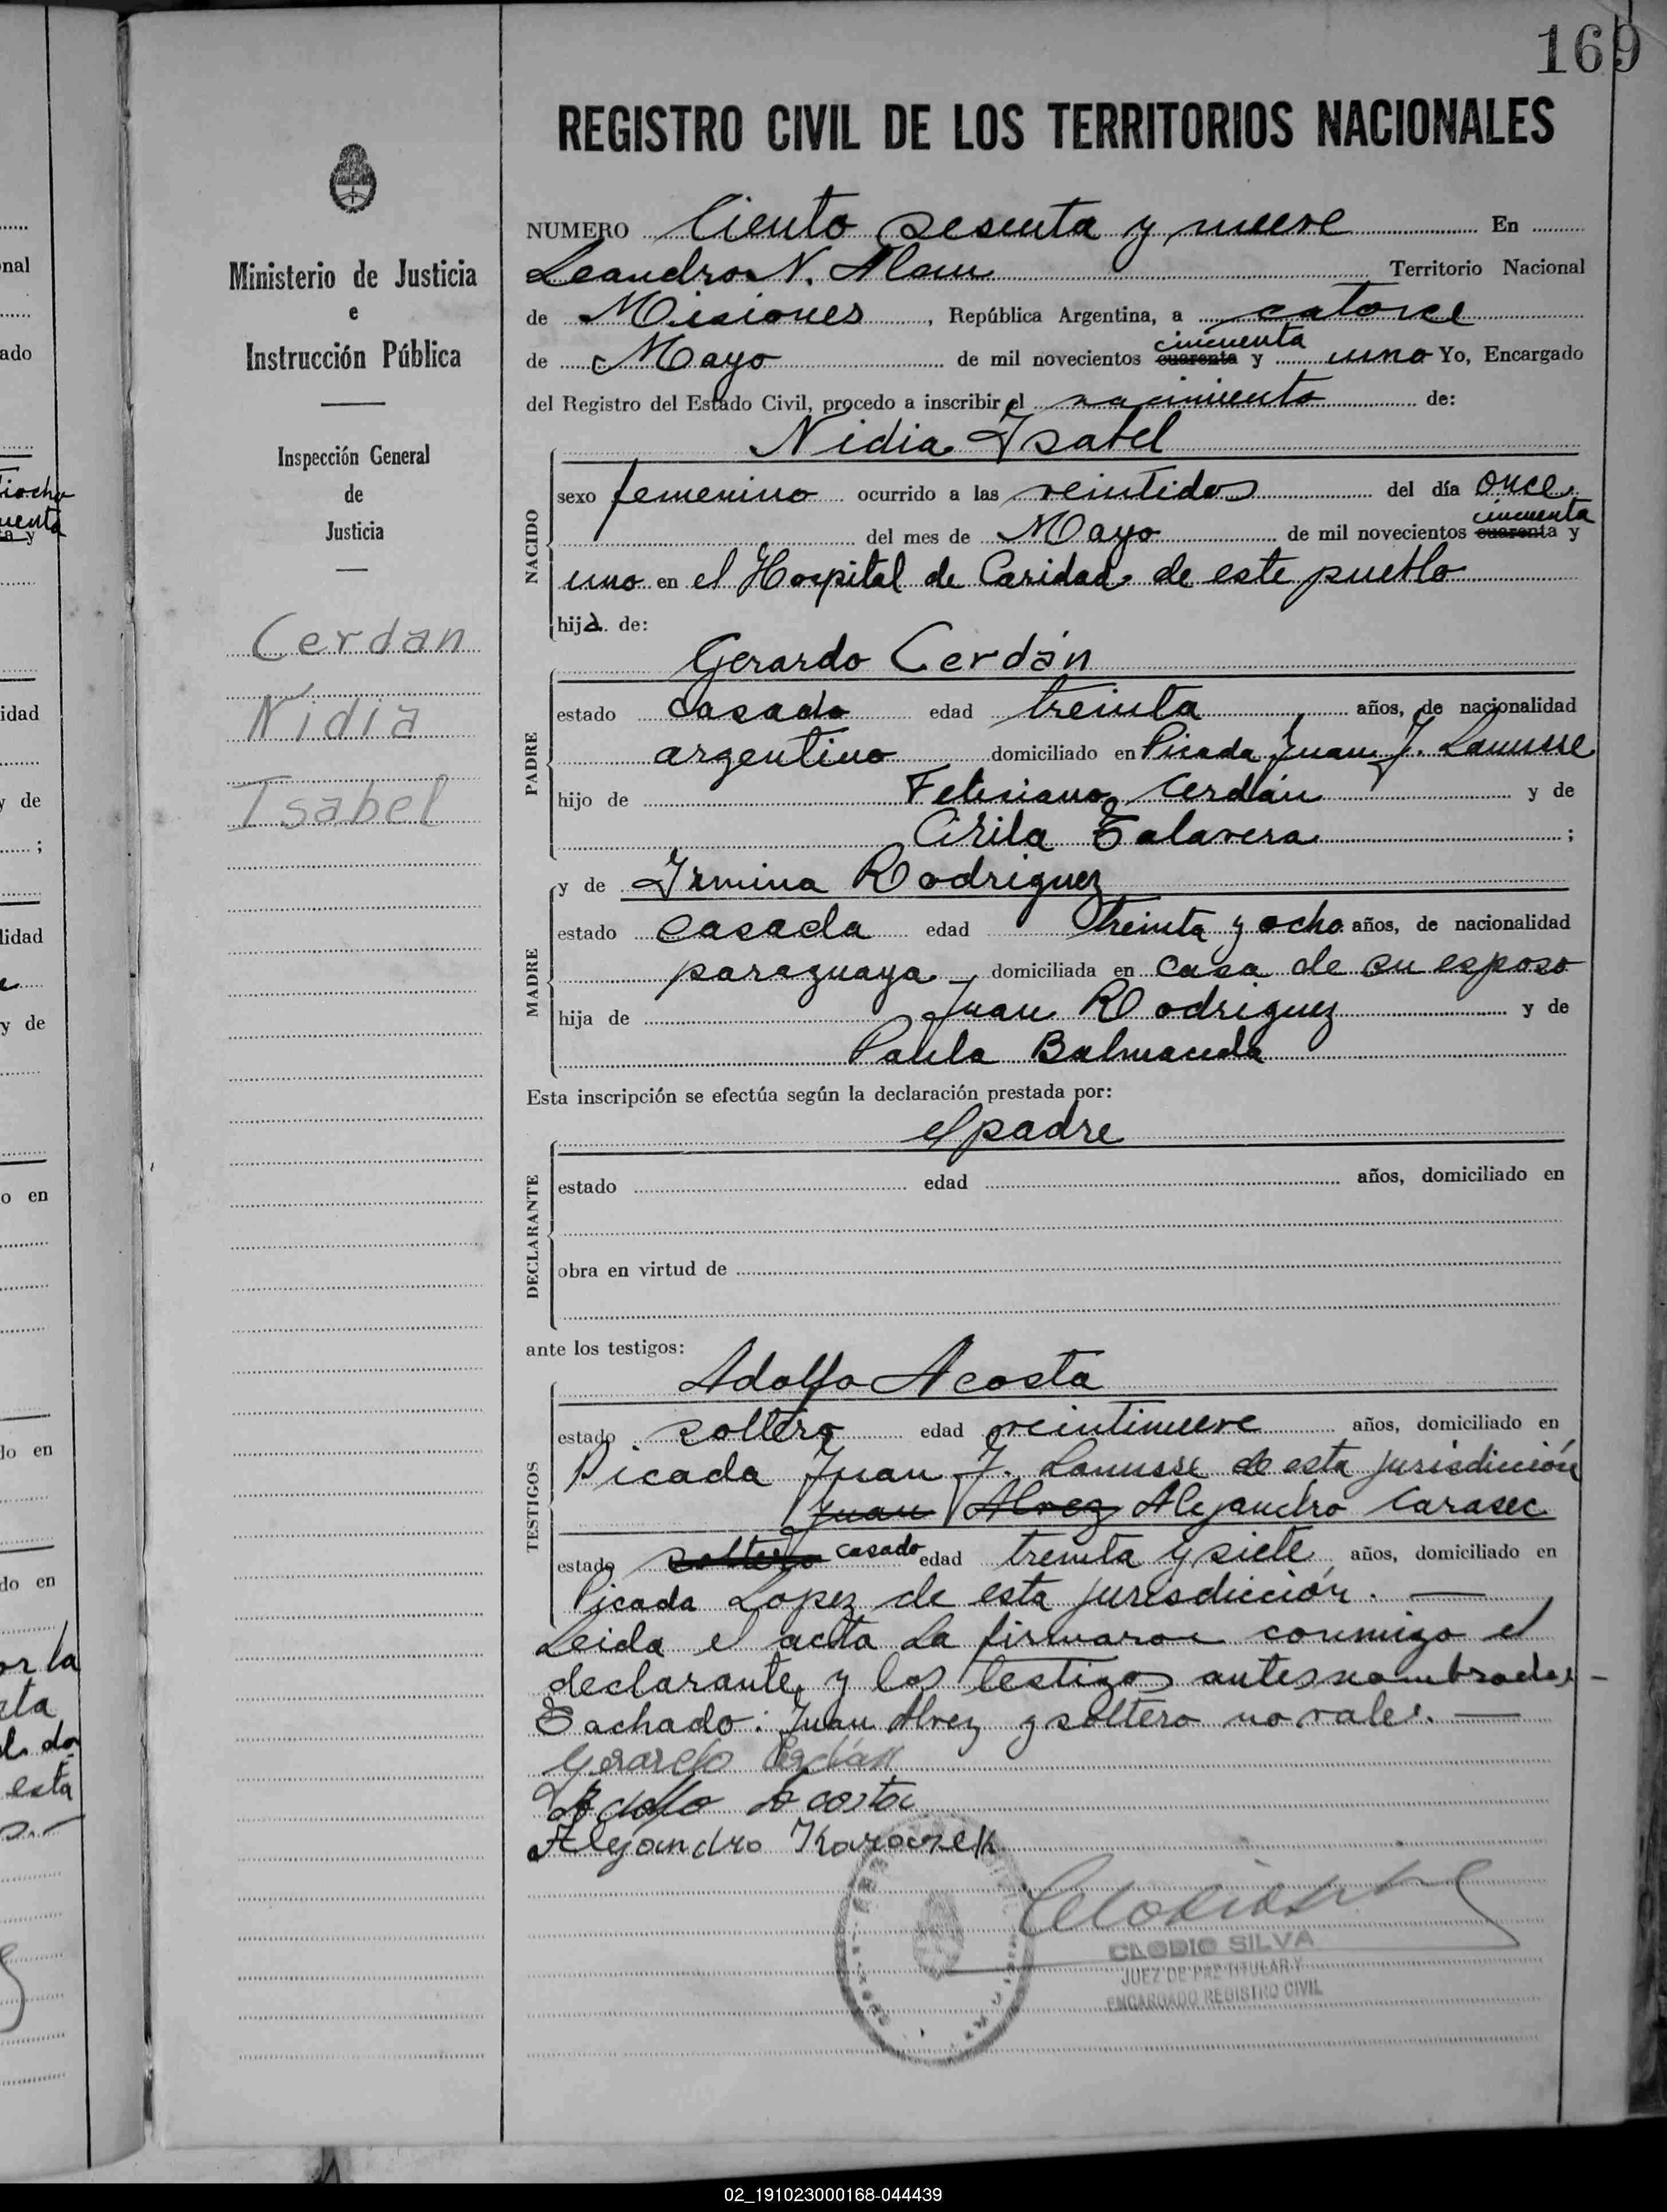 169
REGISTRO CIVIL DE LOS TERRITORIOS NACIONALES
Ministerio de Justicia
e
Instrucción Pública
Inspección General
de
Justicia
Cerdan
Nidia
Isabel
NUMERO Ciento sesenta y nueve En
Leandro N. Alem Territorio Nacional
de Misiones, República Argentina, a catorce
de Mayo de mil novecientos cuarenta cincuenta y uno Yo, Encargado
del Registro del Estado Civil, procedo a inscribir el nacimiento de:
Nidia Isabel
NACIDO
sexo femenino ocurrido a las veintidos del día once
del mes de Mayo de mil novecientos cuarenta cincuenta y
uno en el Hospital de Caridad de este pueblo
hija de:
Gerardo Cerdán
PADRE
estado casado edad treinta años, de nacionalidad
argentino domiciliado en Picada Juan J. Lanusse
hijo de Feliciano Cerdán y de
Cirila Talavera ;
y de Irmina Rodriguez
MADRE
estado casada edad treinta y ocho años, de nacionalidad
paraguaya domiciliada en casa de su esposo
hija de Juan Rodriguez y de
Paula Balmaceda
Esta inscripción se efectúa según la declaración prestada por:
el padre
DECLARANTE
estado edad años, domiciliado en
obra en virtud de
ante los testigos:
Adolfo Acosta
TESTIGOS
estado soltero edad veintinueve años, domiciliado en
Picada Juan J. Lanusse de esta jurisdicción
Juan Alvez Alejandro Carasec
estado soltero casado edad treinta y siete años, domiciliado en
Picada Lopez de esta jurisdicción. —
Leida el acta la firmaron conmigo el
declarante y los testigos antesnombrados -
Tachado: Juan Alvez y soltero no vale. —
Gerardo Cerdán
Adolfo Acosta
Alejandro Karaczek
CLODIO SILVA
JUEZ DE PAZ TITULAR Y
ENCARGADO REGISTRO CIVIL
02_191023000168-044439